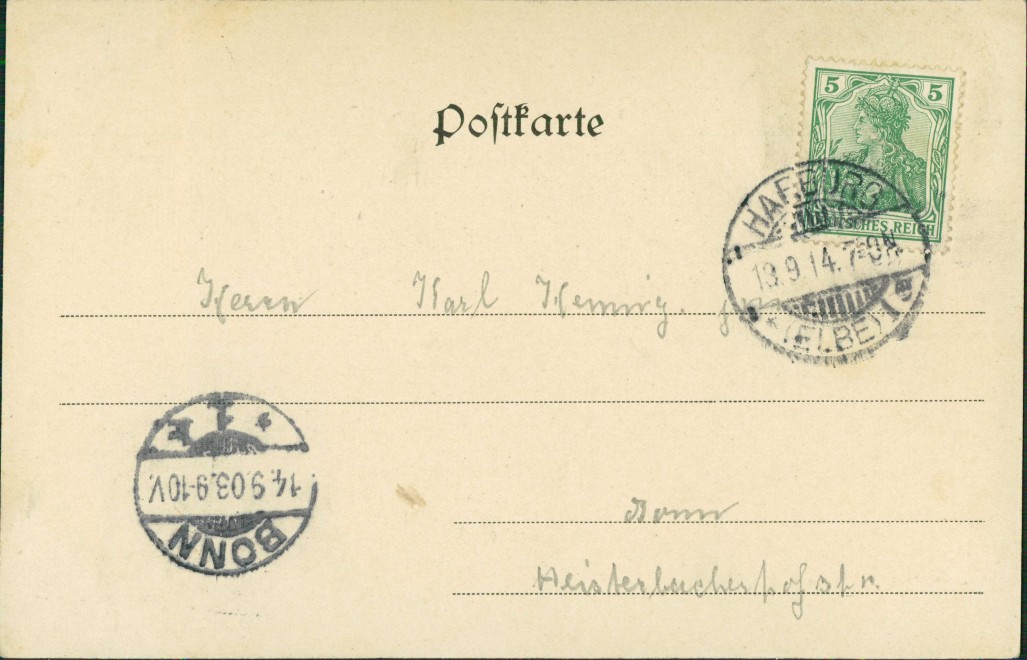 5 5
Postkarte
DEUTSCHES REICH
HARBURG
9.14.7-8N
(ELBE) 1
Herrn Karl Henning.
1
14.9.03.9-10V.
BONN
Bonn
Heisterbacherhofstr.